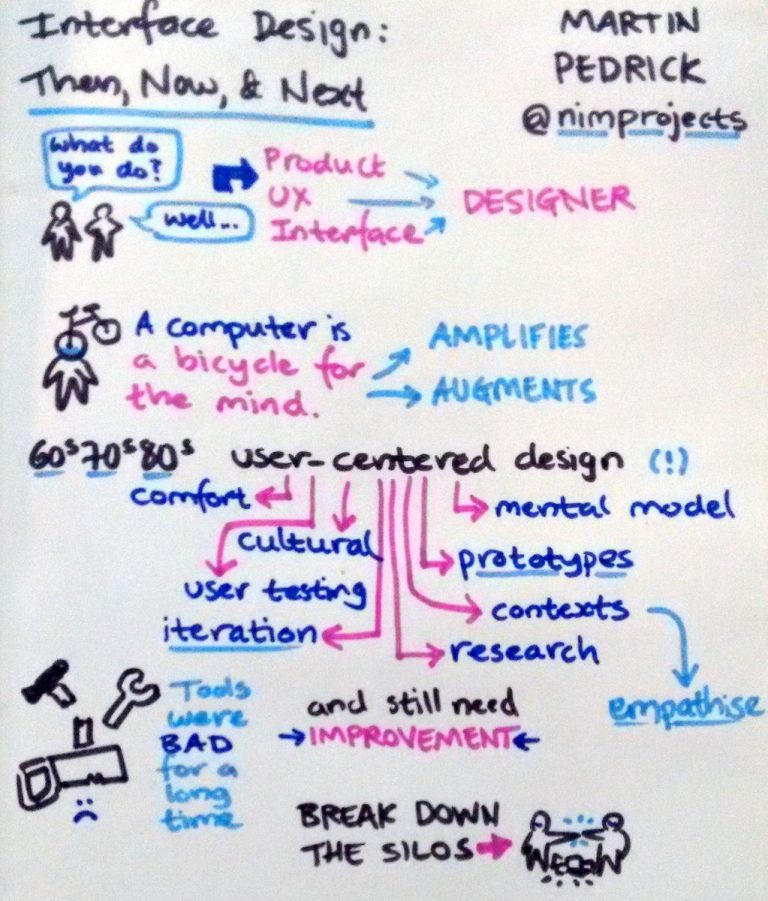 Interface Design:
Then, Now, & Next
MARTIN
PEDRICK
@nimprojects
What do
you do?
well...
Product
UX
Interface
DESIGNER
A computer is
a bicycle for
the mind.
AMPLIFIES
AUGMENTS
60s 70s 80s user-centered design (!)
comfort
cultural
user testing
iteration
mental model
prototypes
contexts
research
empathise
Tools
were
BAD
for a
long
time
and still need
IMPROVEMENT
BREAK DOWN
THE SILOS